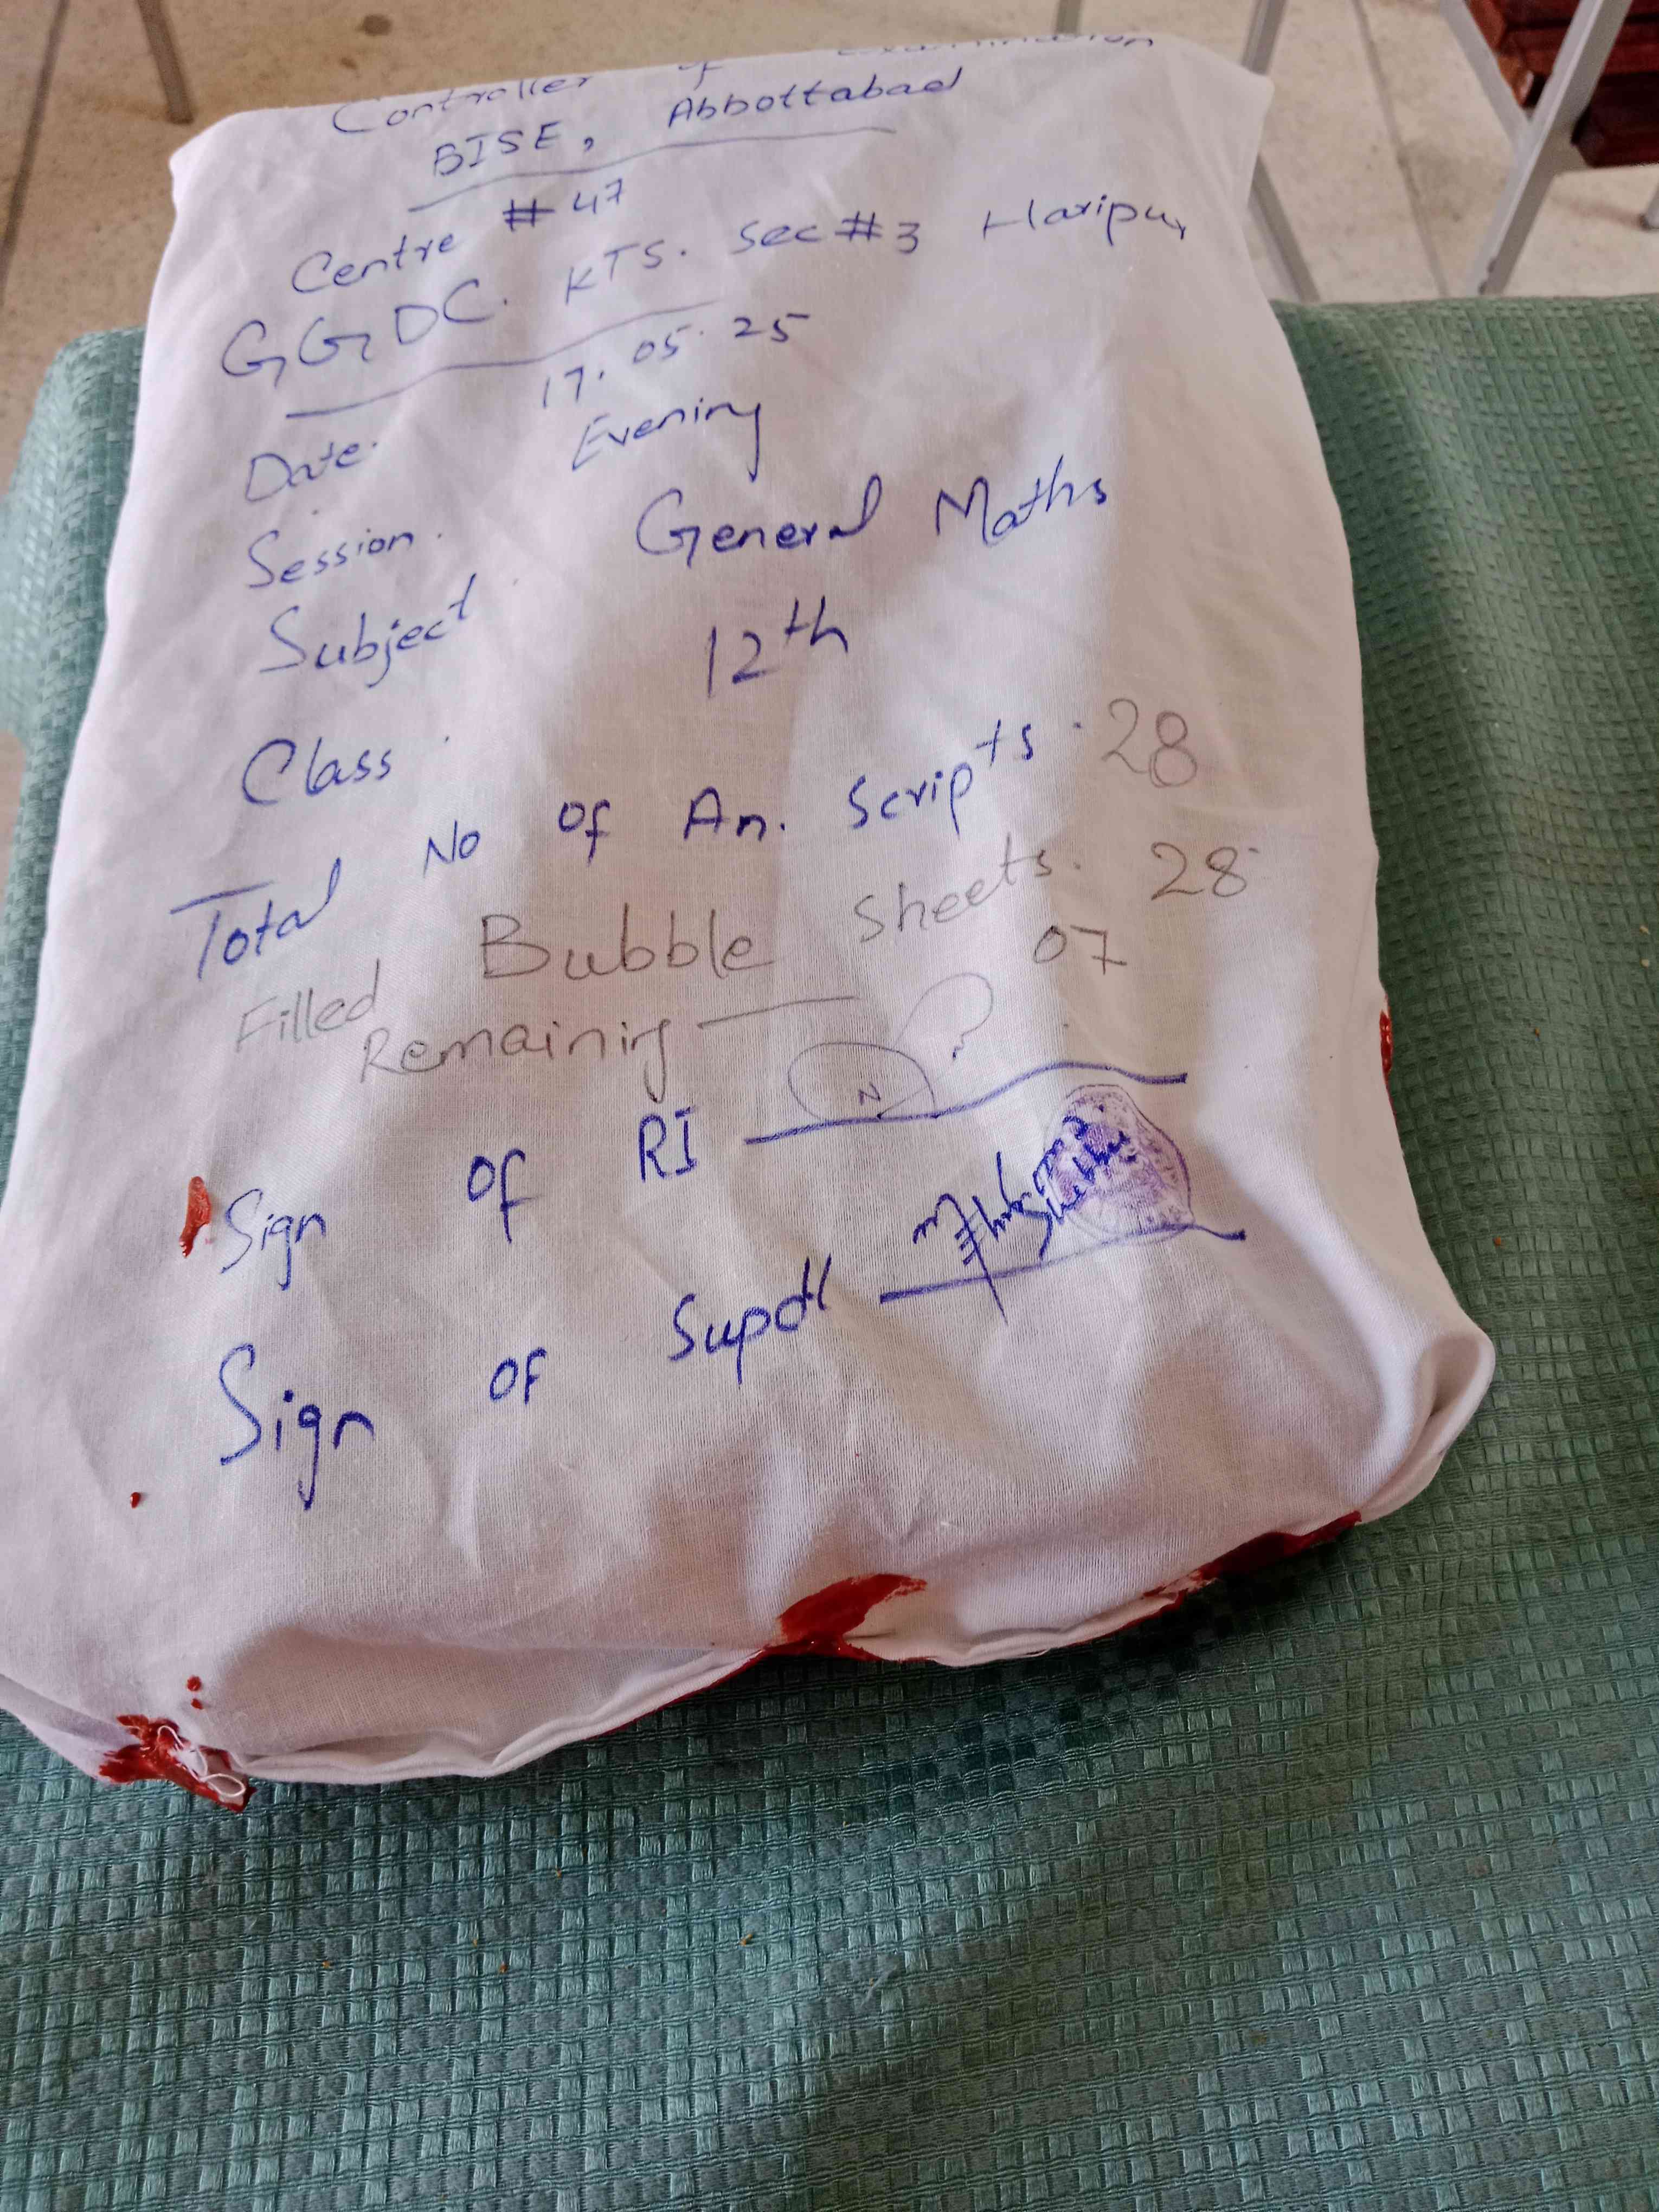 Controller of Examination
BISE, Abbottabad
Centre # 47
GGDC. KTS. Sec #3 Haripur
Date. 17.05.25
Session. Evening
Subject. General Maths
Class. 12th
Total No of An. Scripts. 28
Filled Bubble Sheets. 28
Remaining — 07
Sign of RI
Sign of Supdtt